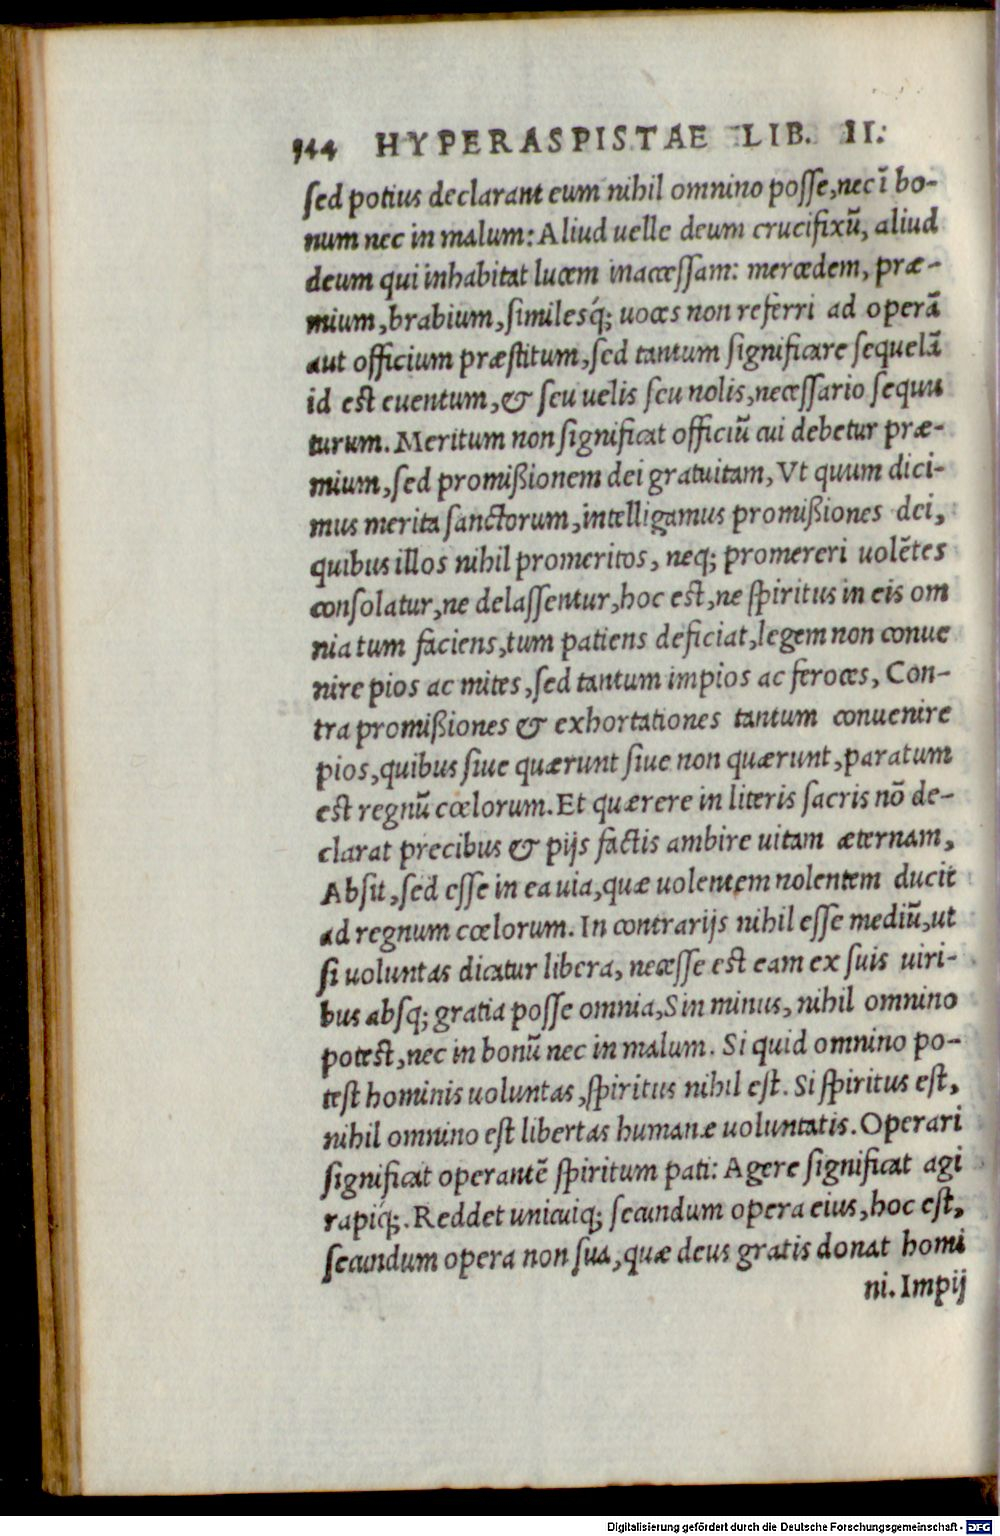 544 HYPERASPISTAE LIB. II.
sed potius declarant eum nihil omnino posse, nec ī bo-
num nec in malum: Aliud uelle deum crucifixū, aliud
deum qui inhabitat lucem inaccessam: mercedem, præ-
mium, brabium, similesq́; uoces non referri ad operā
aut officium præstitum, sed tantum significare sequelā
id est euentum, & seu uelis seu nolis, necessario sequu
turum. Meritum non significat officiū cui debetur præ-
mium, sed promißionem dei gratuitam, Vt quum dici-
mus merita sanctorum, intelligamus promißiones dei,
quibus illos nihil promeritos, neq; promereri uolētes
consolatur, ne delassentur, hoc est, ne spiritus in eis om
nia tum faciens, tum patiens deficiat, legem non conue
nire pios ac mites, sed tantum impios ac feroces, Con-
tra promißiones & exhortationes tantum conuenire
pios, quibus siue quærunt siue non quærunt, paratum
est regnū cœlorum. Et quærere in literis sacris nō de-
clarat precibus & pijs factis ambire uitam æternam,
Absit, sed esse in ea uia, quæ uolentem nolentem ducit
ad regnum cœlorum. In contrarijs nihil esse mediū, ut
si uoluntas dicatur libera, necesse est eam ex suis uiri-
bus absq; gratia posse omnia, Sin minus, nihil omnino
potest, nec in bonū nec in malum. Si quid omnino po-
test hominis uoluntas, spiritus nihil est. Si spiritus est,
nihil omnino est libertas humanæ uoluntatis. Operari
significat operantē spiritum pati: Agere significat agi
rapiq́;. Reddet unicuiq; secundum opera eius, hoc est,
secundum opera non sua, quæ deus gratis donat homi
ni. Impij
Digitalisierung gefördert durch die Deutsche Forschungsgemeinschaft - DFG